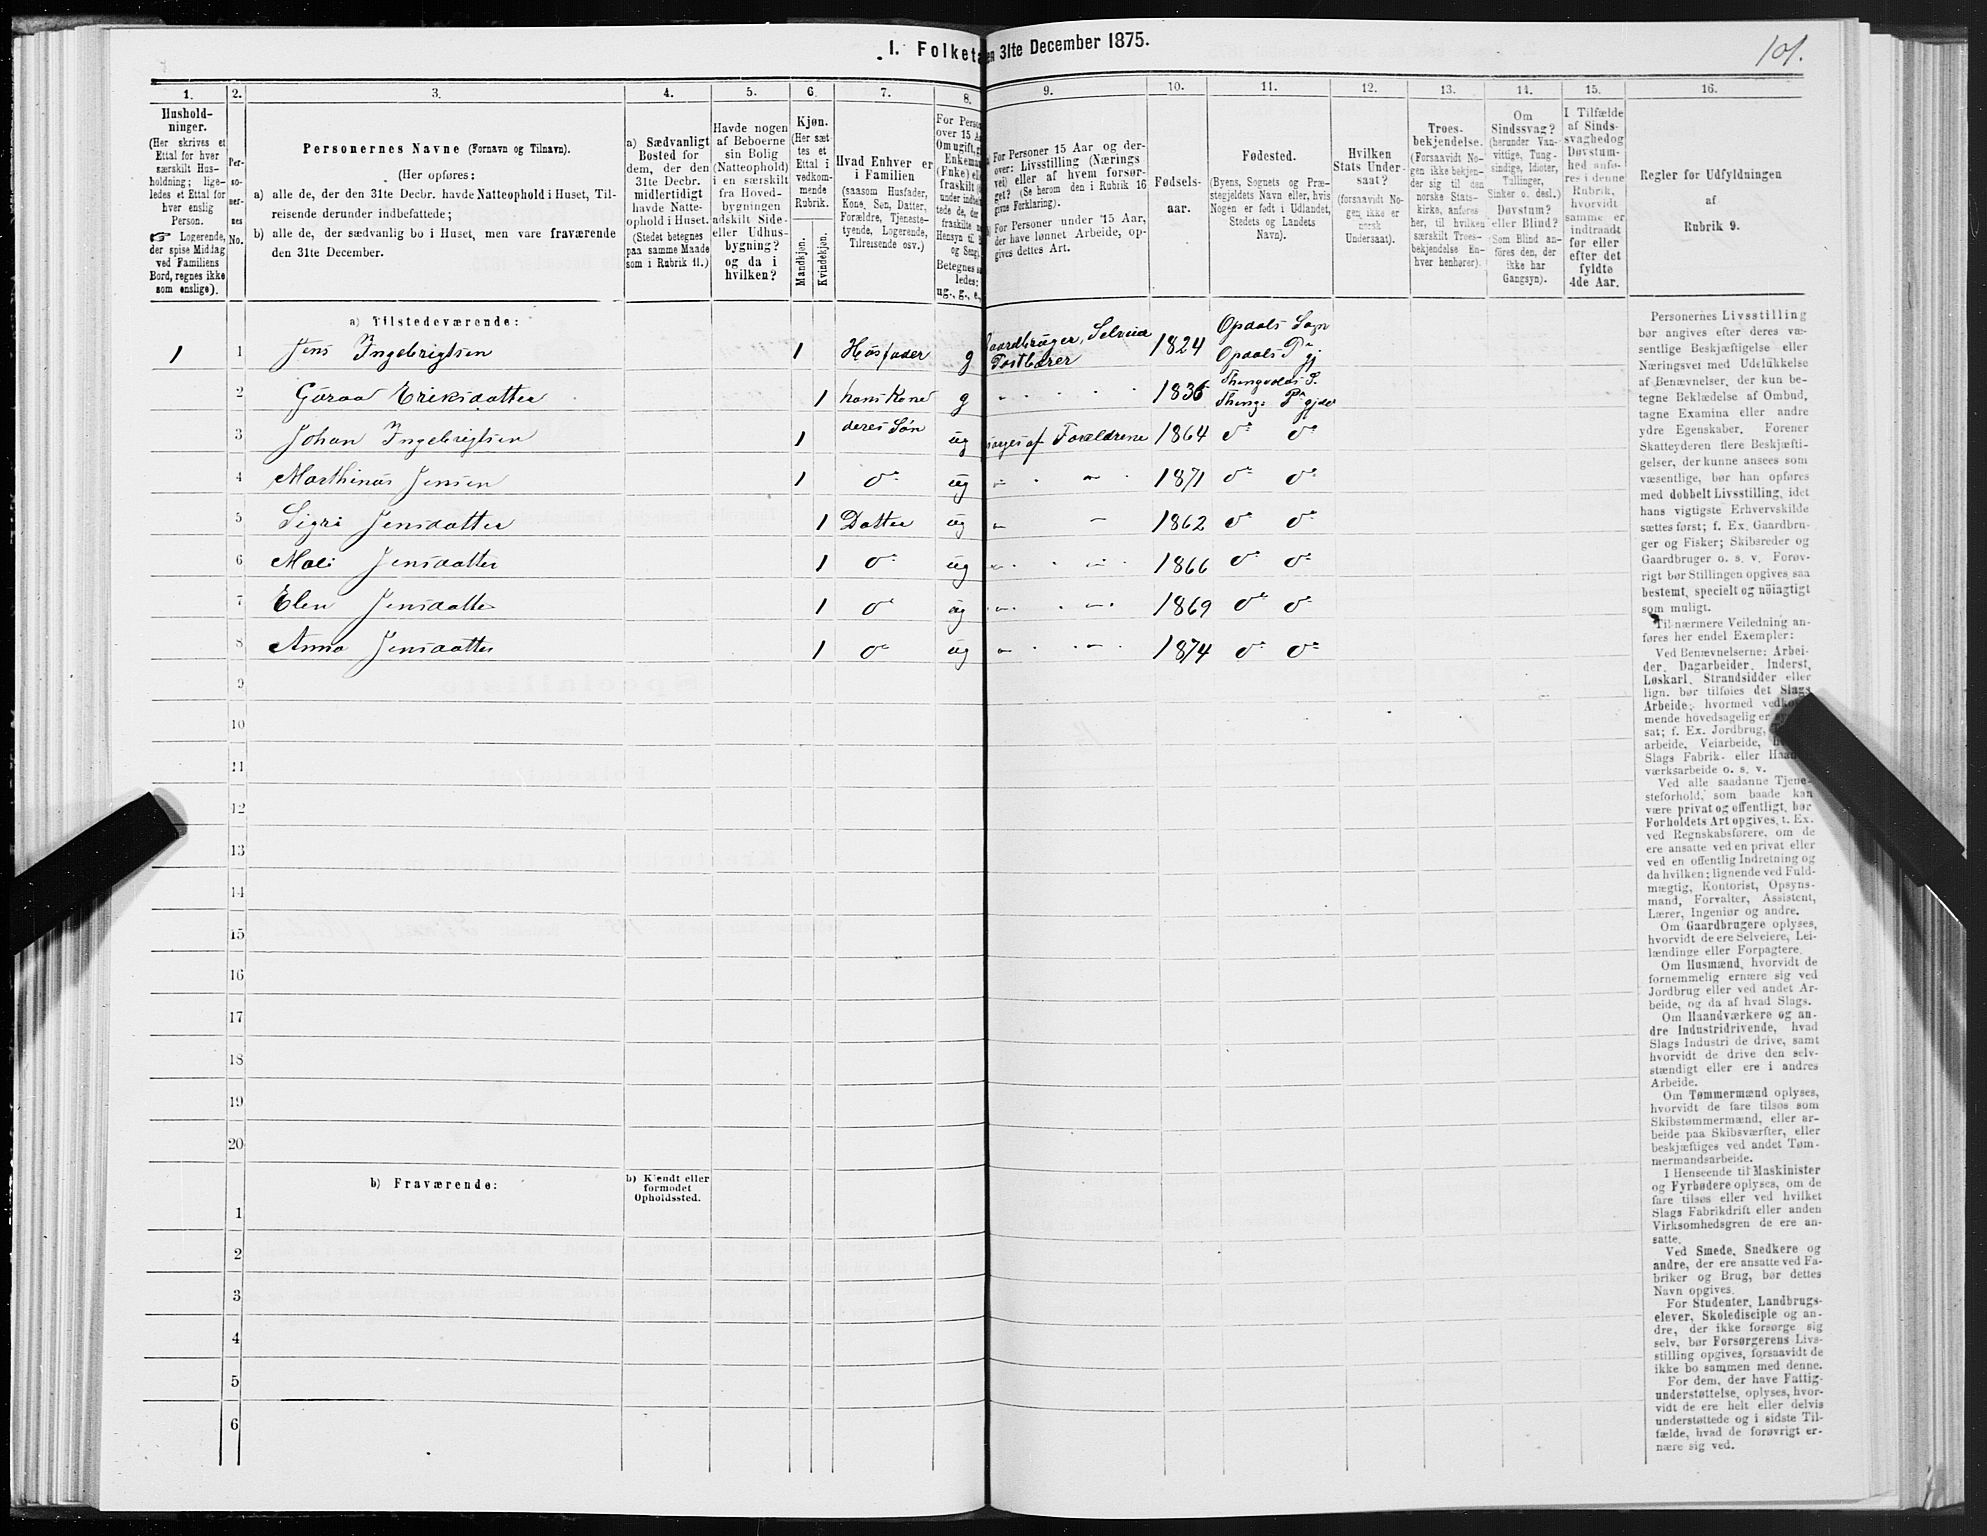 101.
I. Folketa en 31te December 1875.
1. 2. 3. 4. 5. 6. 7. 8. 9. 10. 11. 12. 13. 14. 15. 16.
Hushold-
ninger.
(Her skrives et
Ettal for hver
særskilt Hus-
holdning; lige-
ledes et Ettal for
hver enslig
Person.
☞ Logerende,
der spise Middag
ved Familiens
Bord, regnes ikke
som enslige).
Per-
so-
ner-
nes
No.
Personernes Navne (Fornavn og Tilnavn).
(Her opføres:
a) alle de, der den 31te Decbr. havde Natteophold i Huset, Til-
reisende derunder indbefattede;
b) alle de, der sædvanlig bo i Huset, men vare fraværende
den 31te December.
a) Sædvanligt
Bosted for
dem, der den
31te Decbr.
midlertidigt
havde Natte-
ophold i Huset.
(Stedet betegnes
paa samme Maade
som i Rubrik 11.)
Havde nogen
af Beboerne
sin Bolig
(Natteophold)
i en særskilt
fra Hoved-
bygningen
adskilt Side-
eller Udhus-
bygning?
og da i
hvilken?
Kjøn.
(Her sæt-
tes et
Ettal i
vedkom-
mende
Rubrik.
Mandkjøn.
Kvindekjøn.
Hvad Enhver er
i Familien
(saasom Husfader,
Kone, Søn, Datter,
Forældre, Tjeneste-
tyende, Logerende,
Tilreisende osv.)
For Person
over 15 A
Om ugift, g
Enkeman
(Enke) ell
fraskilt
under indbe
tede de, der
fraskilte
Hensyn til B
og Seng).
Betegnes sa
ledes:
ug., g., e.,
For Personer 15 Aar og der-
over: Livsstilling (Nærings
vei) eller af hvem forsør-
get? (Se herom den i Rubrik 16
givne Forklaring).
For Personer under 15 Aar,
der have lønnet Arbeide, op-
gives dettes Art.
Fødsels-
aar.
Fødested.
(Byens, Sognets og Præ-
stegjeldets Navn eller, hvis
Nogen er født i Udlandet,
Stedets og Landets
Navn).
Hvilken
Stats Under-
saat?
(forsaavidt No-
gen ikke er
norsk
Undersaat).
Troes-
bekjendelse.
(Forsaavidt No-
gen ikke bekjen-
der sig til den
norske Stats-
kirke, anføres
her, til hvilken
særskilt Troes-
bekjendelse En-
hver henhører).
Om
Sindssvag?
(herunder Van-
vittige, Tung-
sindige, Idioter,
Tullinger,
Sinker o. desl.)
Døvstum?
eller Blind?
(Som Blind an-
føres den, der
ikke har
Gangsyn).
I Tilfælde
af Sinds-
svaghed og
Døvstum-
hed anfø-
res i denne
Rubrik,
hvorvidt
samme er
indtraadt
før eller
efter det
fyldte
4de Aar.
Regler for Udfyldningen
af
Rubrik 9.
a) Tilstedeværende:
1 1 Jens Ingebrigtsen 1 Husfader g Gaardbruger, Selveier Postbærer 1824 Opdals Sogn Opdals Pr gj
2 Guroa Eriksdatter 1 hans Kone g " 1836 Thingvolds S. Thing: Pr gjde
3 Johan Ingebrigtsen 1 deres Søn ug sørges af Forældrene 1864 do do
4 Marthinus Jensen 1 do ug " " 1871 do do
5 Sigri Jensdatter 1 Datter ug " " 1862 do do
6 Mali Jensdatter 1 do ug " " 1866 do do
7 Elen Jensdatter 1 do ug " " 1869 do do
8 Anna Jensdatter 1 do ug " " 1874 do do
9
10
11
12
13
14
15
16
17
18
19
20
b) Fraværende:
b) Kjendt eller
formodet
Opholdssted.
1
2
3
4
5
6
Personernes Livsstilling
bør angives efter deres væ-
sentlige Beskjæftigelse eller
Næringsvei med Udelukkelse
af Benævnelser, der kun be-
tegne Beklædelse af Ombud,
tagne Examina eller andre
ydre Egenskaber. Forener
Skatteyderen flere Beskjæfti-
gelser, der kunne ansees som
væsentlige, bør han opføres
med dobbelt Livsstilling, idet
hans vigtigste Erhvervskilde
sættes først; f. Ex. Gaardbru-
ger og Fisker; Skibsreder og
Gaardbruger o. s. v. Forøv-
rigt bør Stillingen opgives saa
bestemt, specielt og nöiagtigt
som muligt.
Til nærmere Veiledning an-
føres her endel Exempler:
Ved Benævnelserne: Arbei-
der, Dagarbeider, Inderst,
Løskarl, Strandsidder eller
lign. bør tilføies det Slags
Arbeide, hvormed vedkom-
mende hovedsagelig er
sat; f. Ex. Jordbrug,
arbeide, Veiarbeide,
Slags Fabrik- eller Haand-
værksarbeide o. s. v.
Ved alle saadanne Tjene-
steforhold, som baade kan
være privat og offentligt, bør
Forholdets Art opgives, t. Ex.
ved Regnskabsførere, om de
ere ansatte ved en privat eller
ved en offentlig Indretning og
da hvilken; lignende ved Fuld-
mægtig, Kontorist, Opsyns-
mand, Forvalter, Assistent,
Lærer, Ingeniør og andre.
Om Gaardbrugere oplyses,
hvorvidt de ere Selveiere, Lei-
lændinge eller Forpagtere.
Om Husmænd, hvorvidt de
fornemmelig ernære sig ved
Jordbrug eller ved andet Ar-
beide, og da af hvad Slags.
Om Haandværkere og an-
dre Industridrivende, hvad
Slags Industri de drive, samt
hvorvidt de drive den selv-
stændigt eller ere i andres
Arbeide.
Om Tømmermænd oplyses,
hvorvidt de fare tilsøs som
Skibstømmermænd, eller ar-
beide paa Skibsværfter, eller
beskjæftiges ved andet Tøm-
mermandsarbeide.
I Henseende til Maskinister
og Fyrbødere oplyses, om de
fare tilsøs eller ved hvilket
Slags Fabrikdrift eller anden
Virksomhedsgren de ere an-
satte.
Ved Smede, Snedkere og
andre, der ere ansatte ved Fa-
briker og Brug, bør dettes
Navn opgives.
For Studenter, Landbrugs-
elever, Skoledisciple og an-
dre, der ikke forsørge sig
selv, bør Forsørgerens Livs-
stilling opgives, forsaavidt de
ikke bo sammen med denne.
For dem, der have Fattig-
understøttelse, oplyses, hvor-
vidt de ere helt eller delvis
understøttede og i sidste Til-
fælde, hvad de forøvrigt er-
nære sig ved.